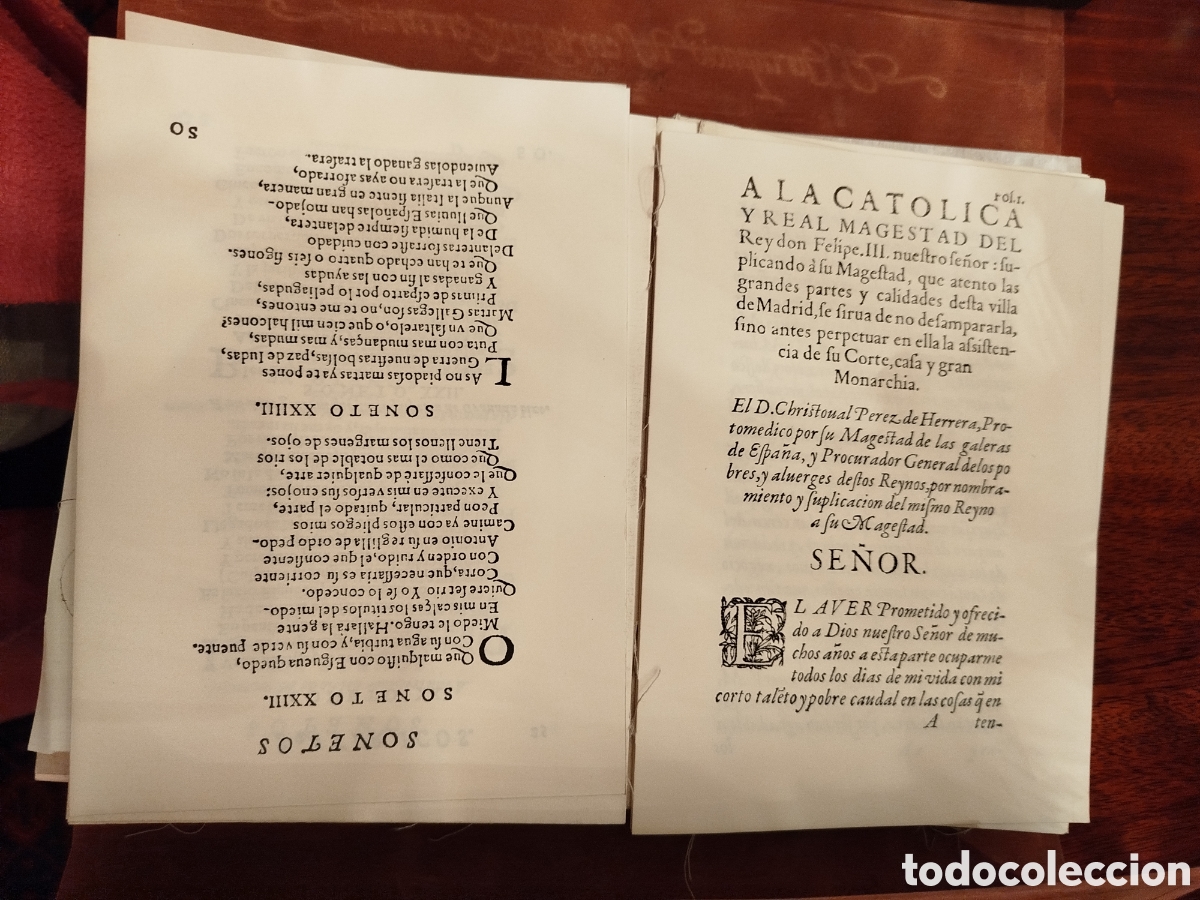 SONETOS
SONETO XXIII.
O Que malquiſto con Eſgueua quedo,
Con ſu agua turbia, y con ſu verde puente.
Miedo le tengo. Hallara la gente
En mis calças los titulos del miedo-
Quiere ſer rio Yo ſe lo concedo.
Corra, que neceſſaria es ſu corriente
Con orden y ruido, el que conſiente
Antonio en ſu reglilla de ordo pedo-
Camine ya con eſtos pliegos mios
Peon particular, quitado el parte,
Y execute en mis verſos ſus enojos:
Que le confeſſare de qualquier arte,
Que como el mas notable de los rios
Tiene llenos los margenes de ojos.
SONETO XXIIII.
LAs no piadoſas martas ya te pones
Guerra de nueſtras bolſas, paz de Iudas,
Puta con mas mudanças, y mas mudas,
Que vn ſaltarelo, o que cien mil halcones?
Martas Gallegas ſon, no, te me entones,
Primas de eſparto por lo peliagudas,
Y ganadas al fin con las ayudas
Que te han echado quatro o ſeis figones.
Delanteras forraſte con cuidado
De la humida ſiempre delantera,
Que lluuias Eſpañolas han mojado-
Aunque la Italia ſiente en gran manera,
Que la traſera no ayas aforrado,
Auiendolas ganado la traſera.
SO
Fol.1.
A LA CATOLICA
Y REAL MAGESTAD DEL
Rey don Felipe. III. nueſtro ſeñor: ſu-
plicando à ſu Mageſtad, que atento las
grandes partes y calidades deſta villa
de Madrid, ſe ſirua de no deſampararla,
ſino antes perpetuar en ella la aſsiſten-
cia de ſu Corte, caſa y gran
Monarchia.
El D. Chriſtoual Perez de Herrera, Pro-
tomedico por ſu Mageſtad de las galeras
de Eſpaña, y Procurador General de los po
bres, y aluerges deſtos Reynos, por nombra-
miento y ſuplicacion del miſmo Reyno
a ſu Mageſtad.
SEÑOR.
EL AVER Prometido y ofreci-
do a Dios nueſtro Señor de mu-
chos años a eſta parte ocuparme
todos los dias de mi vida con mi
corto talẽto y pobre caudal en las coſas q̃ en
A ten-
todocoleccion